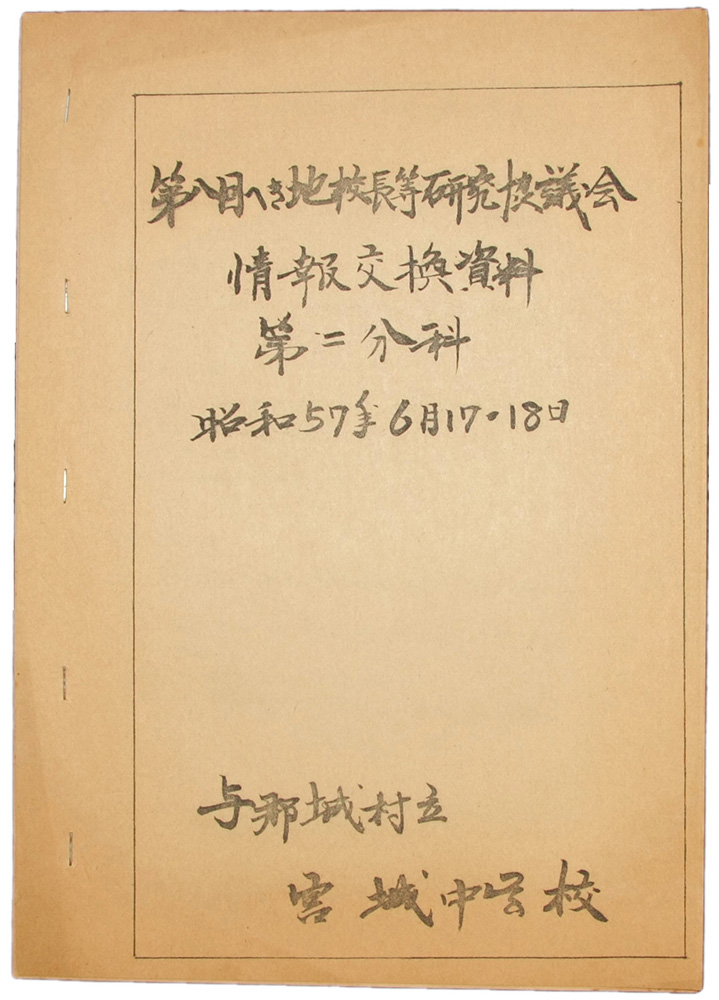 第八回へき地校長等研究協議会
情報交換資料
第二分科
昭和57年6月17・18日
与那城村立
宮城中学校